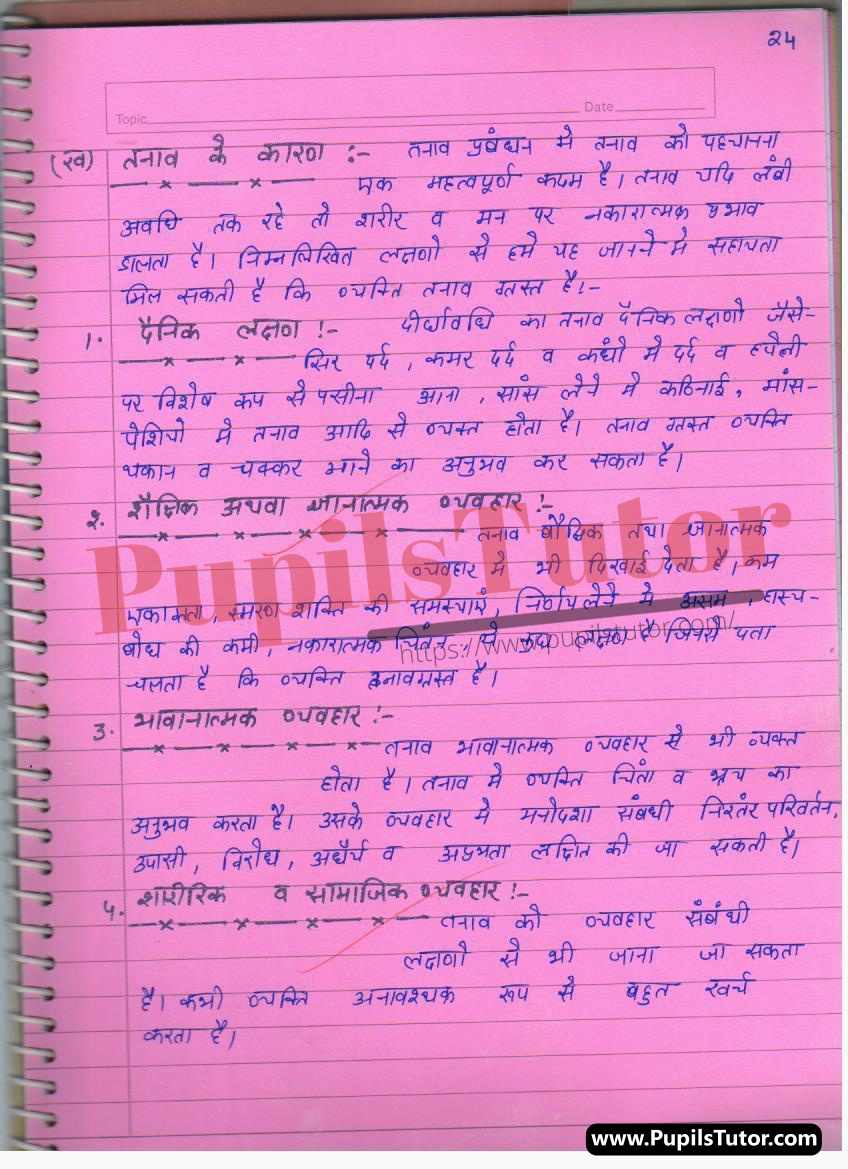 24
Topic
Date
(ख) तनाव के कारण :- तनाव प्रबंधन मे तनाव को पहचानना
एक महत्वपूर्ण कदम है। तनाव यदि लंबी
अवधि तक रहे तो शरीर व मन पर नकारात्मक प्रभाव
डालता है। निम्नलिखित लक्षणो से हमे यह जानने मे सहायता
मिल सकती है कि व्यक्ति तनाव ग्रस्त है।-
1. दैनिक लक्षण :- दीर्घावधि का तनाव दैनिक लक्षणो जैसे-
सिर दर्द, कमर दर्द व कंधो मे दर्द व हथेली
पर विशेष रूप से पसीना आना, सांस लेने मे कठिनाई, मांस-
पेशियो मे तनाव आदि से व्यक्त होता है। तनाव ग्रस्त व्यक्ति
थकान व चक्कर आने का अनुभव कर सकता है।
2. शैक्षिक अथवा ज्ञानात्मक व्यवहार :-
तनाव बौद्धिक तथा ज्ञानात्मक
व्यवहार मे भी दिखाई देता है। कम
एकाग्रता, स्मरण शक्ति की समस्याएं, निर्णय लेने मे असमं, हास्य-
बोध की कमी, नकारात्मक चिंतन, ये कुछ लक्षण है जिनसे पता
चलता है कि व्यक्ति तनावग्रस्त है।
3. भावानात्मक व्यवहार :-
तनाव भावानात्मक व्यवहार से भी व्यक्त
होता है। तनाव मे व्यक्ति चिंता व भय का
अनुभव करता है। उसके व्यवहार मे मनोदशा संबंधी निरंतर परिवर्तन,
उदासी, विरोध, अधैर्य व लक्षित की जा सकती है।
4. शारीरिक व सामाजिक व्यवहार :-
तनाव को व्यवहार संबंधी
लक्षणो से भी जाना जा सकता
है। कभी व्यक्ति अनावश्यक रूप से बहुत खर्च
करता है।
PupilsTutor
https://www.pupilstutor.com/
www.PupilsTutor.com